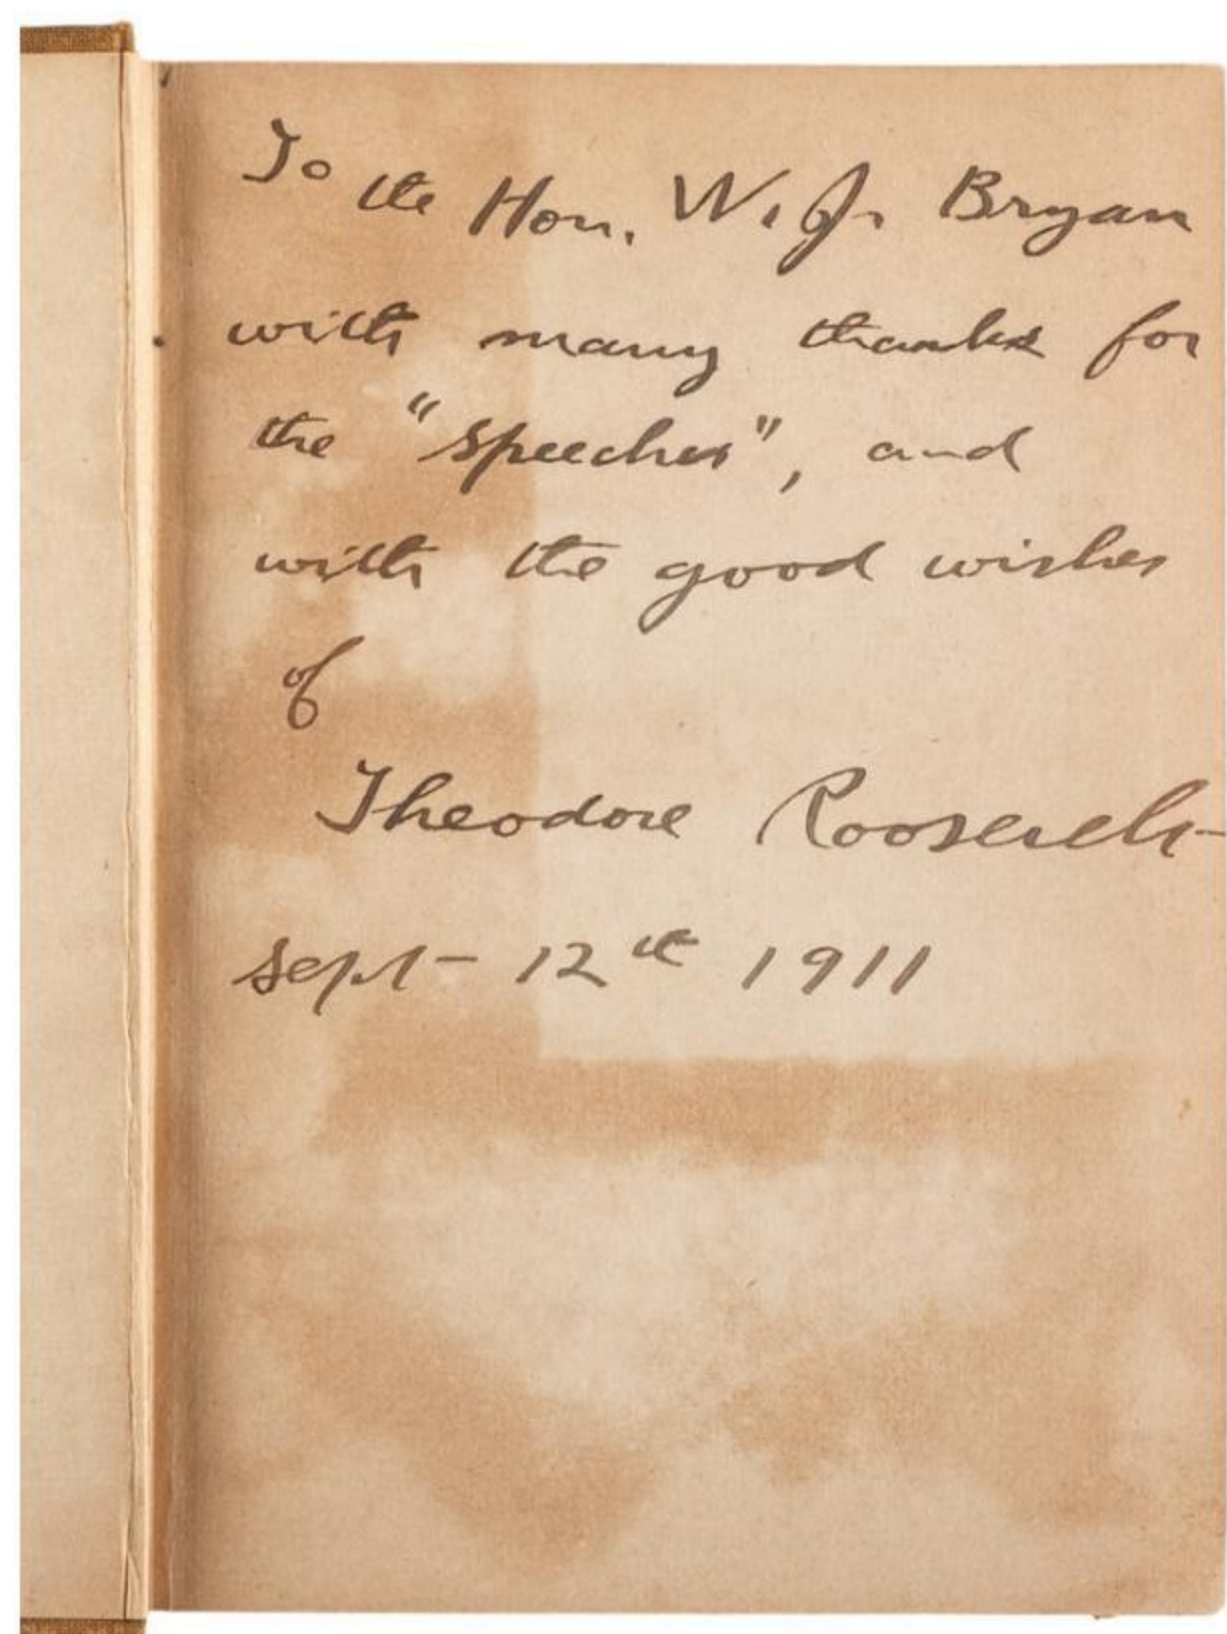 To the Hon. W. J. Bryan
with many thanks for
the "speeches", and
with the good wishes
of
Theodore Roosevelt
Sept 12th 1911